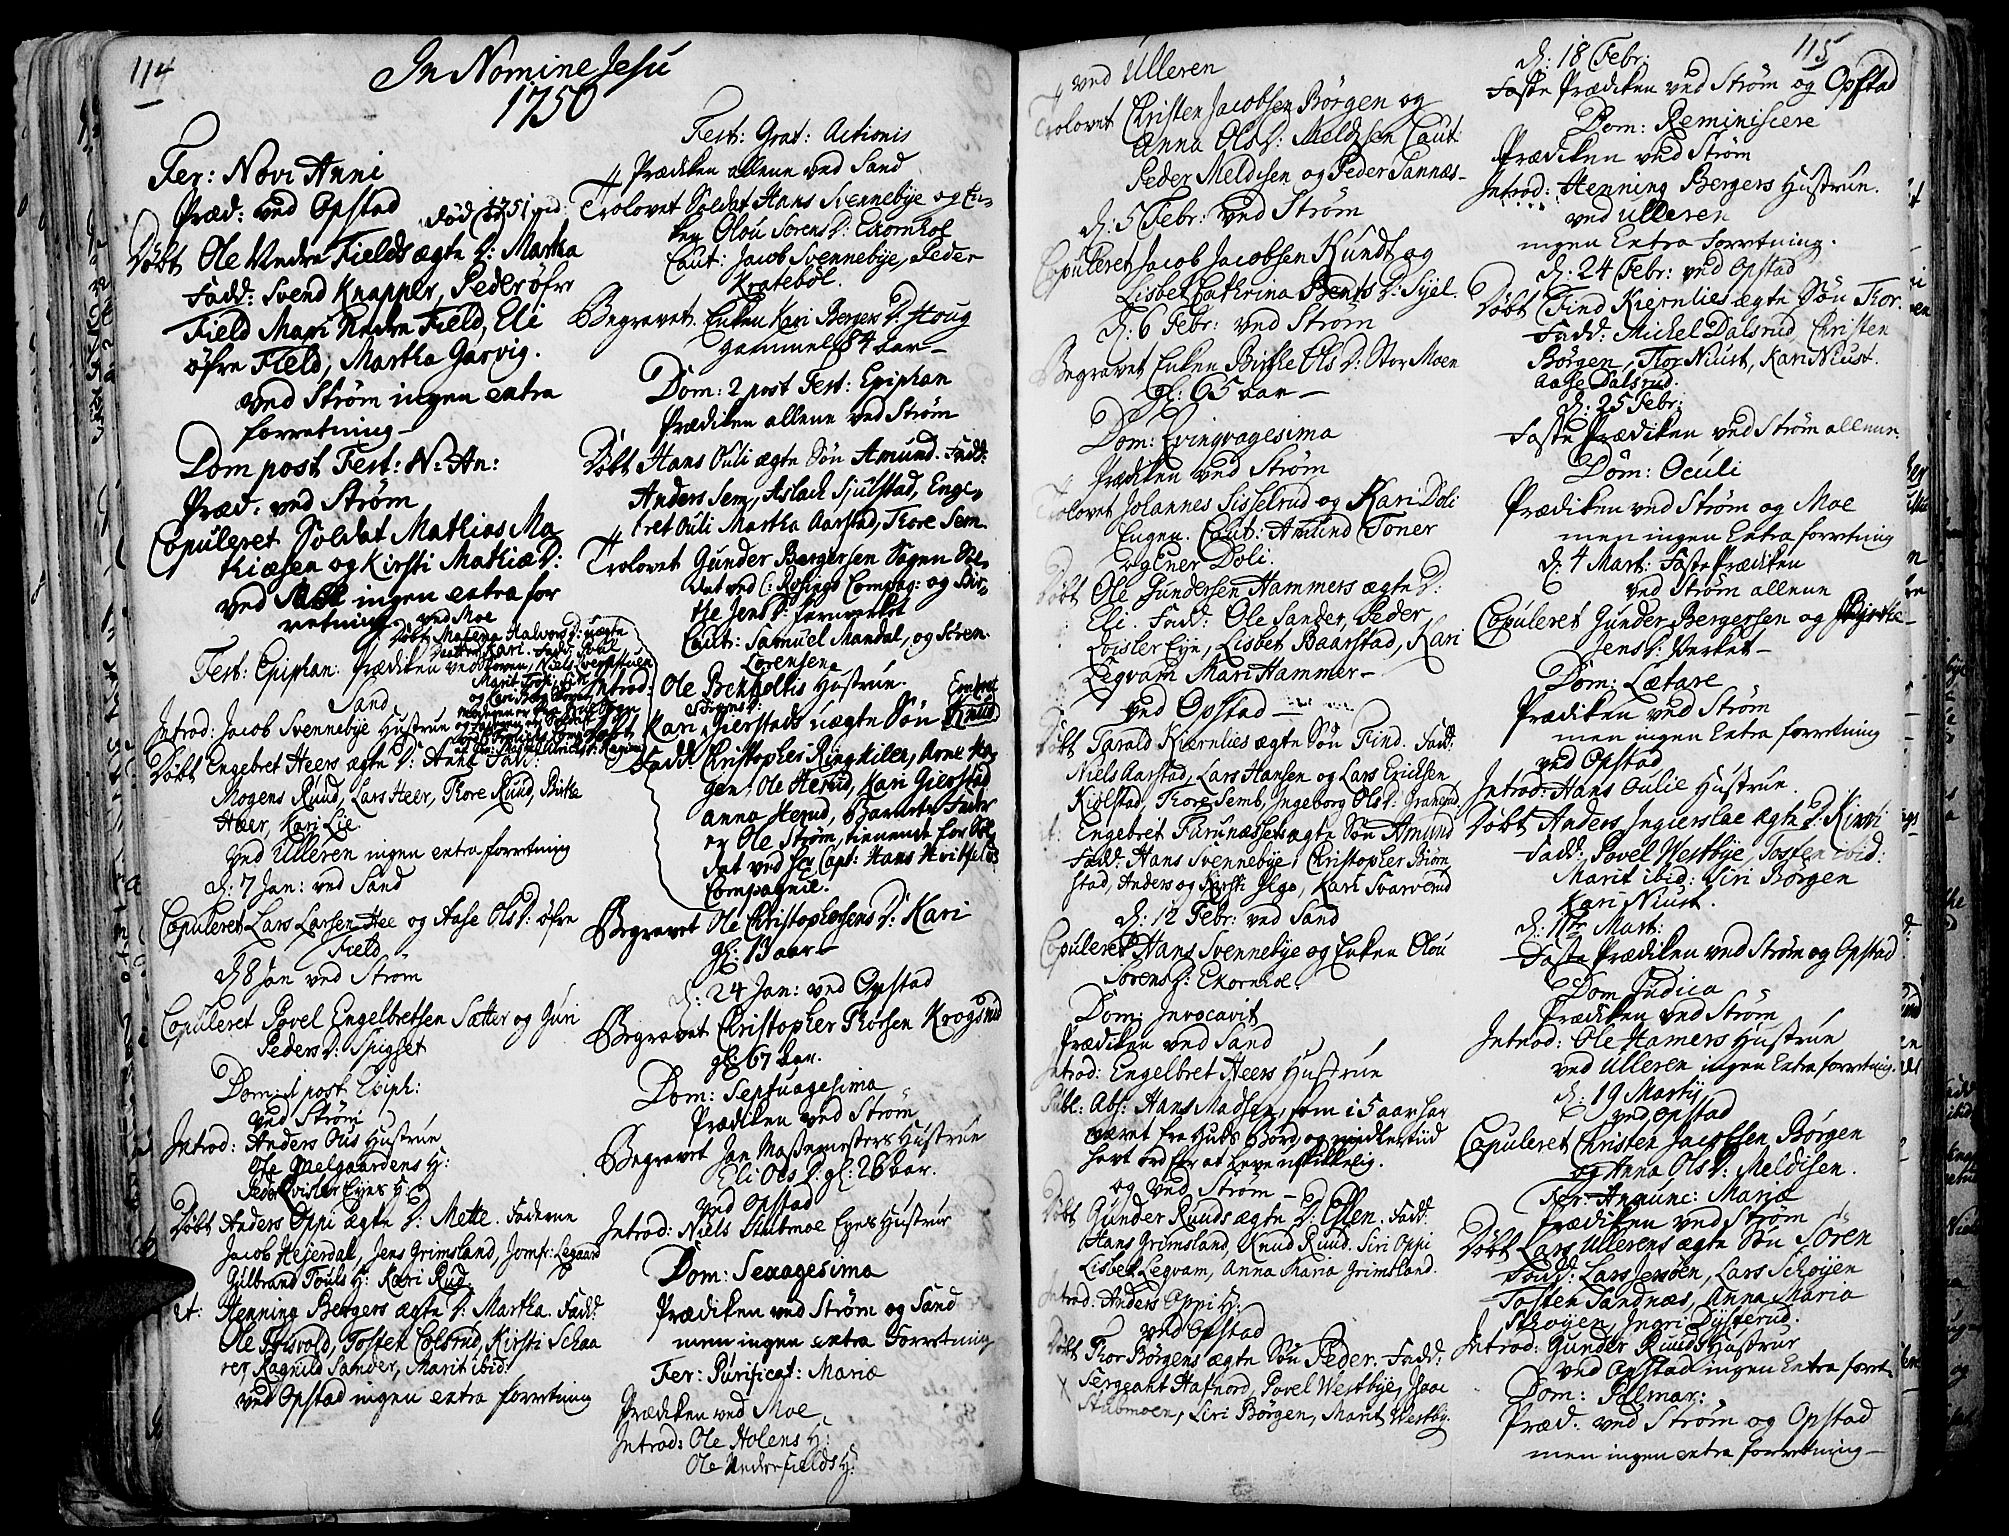 114
In Nomine Jesu
1750
Fer: Novi Anni
Præd: ved Opstad
død 1751
Døbt Ole Nedre Fields ægte D: Martha
Fadd: Svend Knapper, Peder øfre
Field Mari Nedre Field, Eli
øfre Field, Martha Garvig.
ved Strøm ingen extra
forretning
Dom post Fest: N: An:
Præd. ved Strøm
Copuleret Soldat Mathias Ma
thiæsen og Kirsti Mathiæ D:
ved Moe ingen extra for
retning
ved Moe
Døbt Malena Halvors D: uægte
Datter Kari. Fadd: Povel
Fest: Epiphan: Prædiken ved
Sand
Introd: Jacob Svennebye Hustrue
Døbt Engebret Heers ægte D: Anne Fadd:
Mogens Ruud, Lars Heer, Thore Ruud, Birthe
Heer, Kari Lie.
ved Ulleren ingen extra forretning
d: 7 Jan: ved Sand
Copuleret Lars Larsen Hee og Aase Ols D: øfre
Field
d 8 Jan ved Strøm
Copuleret Povel Engelbretsen Sætter og Guri
Peders D: Spigset
Dom: 1 post Epiph:
ved Strøm
Introd: Anders Olis Hustrue
Ole Gaelgaardens H:
Peder Qvisler Eyes H:
Døbt Anders Oppi ægte D: Mette. Fadderne
Jacob Hejerdal, Jens Grimsland, Jomfr: Legaard
Gulbrand Fouls H: Kari Rud
it: Henning Bergers ægte D: Martha. Fadd:
Ole Frisvold, Tosten Colsrud, Kirsti Schaa
rer, Ragnild Sander, Marit ibid:
ved Opstad ingen extra forretning
Fest: Grat: Actionis
Prædiken allene ved Sand
Trolovet Soldat Hans Svennebye og En-
ken Olou Sørens D: Ekornhol
Caut: Jacob Svennebye, Peder
Kratebøl.
Begravet. Enken Kari Bergers D: Houg
gammel 84 aar
Dom: 2 post Fest: Epiphan
Prædiken allene ved Strøm
Døbt Hans Ouli ægte Søn Amund. Fadd:
Anders Sem, Aslach Sjulstad, Enge-
bret Ouli Martha Aarstad, Thore Sem
Trolovet Gunder Bergersen Sagen Sol-
dat ved C: Rosings Compag: og Bir-
the Jens D: Jernverket
Caut: Samuel Mandal, og Søren
Lorensen
Introd: Ole Bekholtis Hustrue.
Døbt Kari Gierstads uægte Søn Knud
Fadd: Christopher Ringkilen, Arne Ha-
gen, Ole Herud, Kari Gierstad
Anna Herud, Barnets Fader
er Ole Strøm, tienende for Sol-
dat ved Hr Capt: Hans Hvitfelds
Compagnie.
Begravet Ole Christophersens D: Kari
gl: 13 aar
d: 24 Jan: ved Opstad
Begravet Christopher Thorsen Krogsrud
gl: 67 aar.
Dom: Septuagesima
Prædiken ved Strøm
Begravet Jan Masemesters Hustrue
Eli Ols D: gl: 26 aar.
ved Opstad
Introd: Niels Stubmoe Eyes Hustrue
Dom: Sexagesima
Prædiken ved Strøm og Sand
men ingen extra Forretning
Fer: Purificat: Mariæ
Prædiken ved Moe
Introd: Ole Holens H:
Ole Nedre Fields H:
115
ved Ulleren
Trolovet Christen Jacobsen Børgen og
Anna Ols D: Meldisen Caut:
Peder Meldisen og Peder Sannæs
d: 5 Febr: ved Strøm
Copuleret Jacob Jacobsen Kundt og
Lisbet Cathrina Bents D: Syel.
d: 6 Febr: ved Strøm
Begravet Enken Birthe Ols D: Stor Moen
gl: 65 aar
Dom: Qvinqvagesima
Prædiken ved Strøm
Trolovet Johannes Sisselrud og Kari Doli
Engen. Caut: Amund Toner
og Ener Doli.
Døbt Ole Gundersen Hammers ægte D:
Eli. Fadd: Ole Sander, Peder
Qvisler Eye, Lisbet Baarstad, Kari
Legvam Mari Hammer
ved Opstad
Døbt Tarald Kiernlies ægte Søn Find. Fadd:
Niels Aarstad, Lars Hansen og Lars Ericksen
Kiølstad, Thore Semb, Ingeborg Ols D: Granerud
it: Engebret Furunæssets ægte Søn Amund
Fadd: Hans Svennebye, Christopher Biørn
stad, Anders og Kirsti Ilgo, Kari Svarverud
d: 12 Febr: ved Sand
Copuleret Hans Svennebye og Enken Olou
Sørens D: Ekornhol.
Dom: Invocavit
Prædiken ved Sand
Introd: Engelbret Heers Hustrue
Publ: Abs: Hans Madsen, som i 5 aar har
været fra Guds Bord og midlertiid
havt ord for at leve uskikkelig.
og ved Strøm
Døbt Gunder Ruuds ægte D: Ellen. Fadd:
Hans Grimsland, Knud Ruud. Siri Oppi
Lisbet Legvam, Anna Maria Grimsland.
Introd: Anders Oppi H:
ved Opstad
Døbt Thor Børgens ægte Søn Peder. Fadd:
Sergeant Hafnord, Povel Westbye, Isaac
Stubmoen, Siri Børgen, Marit Westby.
d: 18 Febr:
Faste Prædiken ved Strøm og Opstad
Dom: Reminiscere
Prædiken ved Strøm
Introd: Henning Bergers Hustrue.
ved Ulleren
ingen Extra forretning.
d: 24 Febr: ved Opstad
Døbt Find Kiernlies ægte Søn Thor.
Fadd: Michel Dalsrud, Christen
Børgen, Thor Niust, Kari Niust.
Aase Dalsrud.
d: 25 Febr:
Faste Prædiken ved Strøm allene.
Dom: Oculi
Prædiken ved Strøm og Moe
men ingen Extra forretning
d: 4 Mart: Faste Prædiken
ved Strøm allene
Copuleret Gunder Bergersen og Birthe
Jens D: Verket
Dom: Lætare
Prædiken ved Strøm
men ingen Extra forretning
ved Opstad
Introd: Hans Oulie Hustrue.
Døbt Anders Ingierslae ægte D: Kirsti
Fadd: Povel Westbye, Tosten ibid:
Marit ibid: Siri Børgen
Kari Niust.
d: 11te Mart:
Faste Prædiken ved Strøm og Opstad
Dom Judica
Prædiken ved Strøm
Introd: Ole Hamers Hustrue
ved Ulleren ingen Extra forretning.
d: 19 Martij
ved Opstad
Copuleret Christen Jacobsen Børgen
og Anna Ols D: Meldisen.
Fer: Annunc: Mariæ
Prædiken ved Strøm
Døbt Lars Ullerens ægte Søn Søren
Fadd: Lars Jersøen, Lars Schøyen
Tosten Sandnæs, Anna Maria
Schøyen, Ingri Dysterud.
Introd: Gunder Ruuds Hustrue
ved Opstad ingen Extra forret-
Dom: Palmar:
Præd: ved Strøm og Opstad
men ingen extra forretning